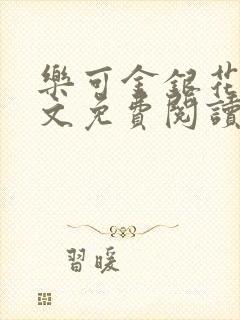 樂可金銀花
文免費閱讀
習暖